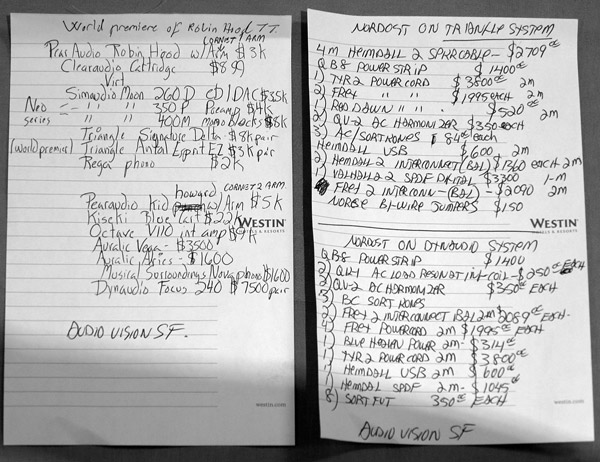 World premiere of Robin Hood TT.
CORNET 1 ARM
Pear Audio Robin Hood w/Arm $3k
Clearaudio Cartridge $8
Virt
Simaudio Moon 260D CD/DAC $3k
Neo " " 350P Preamp $4k
series " " 400M monoblocks $8k
Triangle Signature Delta $8k pair
(World premier) Triangle Antal EZ $3k pair
Rega phono $2k
howard CORNET 2 ARM
Pearaudio Kid w/Arm $5k
Kiseki Blue Cart $2.2k
Octave V110 int amp $9k
Auralic Vega - $3500
Auralic Aries - $1600
Musical Surroundings Nova phono $1600
Dynaudio Focus 240 $7500 pair
AUDIO VISION SF.
WESTIN
HOTELS & RESORTS
westin.com
NORDOST ON TRIANGLE SYSTEM
4M HEIMDALL 2 SPKRCABLE - $2709
QB8 POWER STRIP $1400
1) TYR2 POWER CORD $3800 2m
2) FREY " " $1995 EACH 2m
1) RED DAWN " " . $520 2m
2) QV-2 AC HARMONIZER $350 EACH
3) AC/SORTKONES $84 each
HEIMDALL USB $600 2m
2) HEIMDALL 2 INTERCONNECT (BAL) $1360 EACH 2m
1) VALHALLA 2 SPDF DIGITAL $3300 1-m
FREY 2 INTERCONN - (BAL) - $2090 2m
NORSE BI-WIRE JUMPERS $150
WESTIN
HOTELS & RESORTS
NORDOST ON DYNAUDIO SYSTEM
QB8 POWER STRIP $1400
2) QK-1 AC LOAD RESONATING-COIL - $250 EACH
2) QV-2 AC HARMONIZER $350 EACH
3) BC SORT KONES
2) FREY 2 INTERCONNECT BAL 2m $2089 EACH -
4) FREY POWERCORD 2M $1995 EACH
1) BLUE HEAVEN POWER 2m - $314
1) TYR 2 POWER CORD 2M $3800
1) HEIMDALL USB 2M $600
1) HEIMDAL SPDF 2M - $1045
8) SORT FUT 350 EACH
AUDIO VISION SF
westin.com